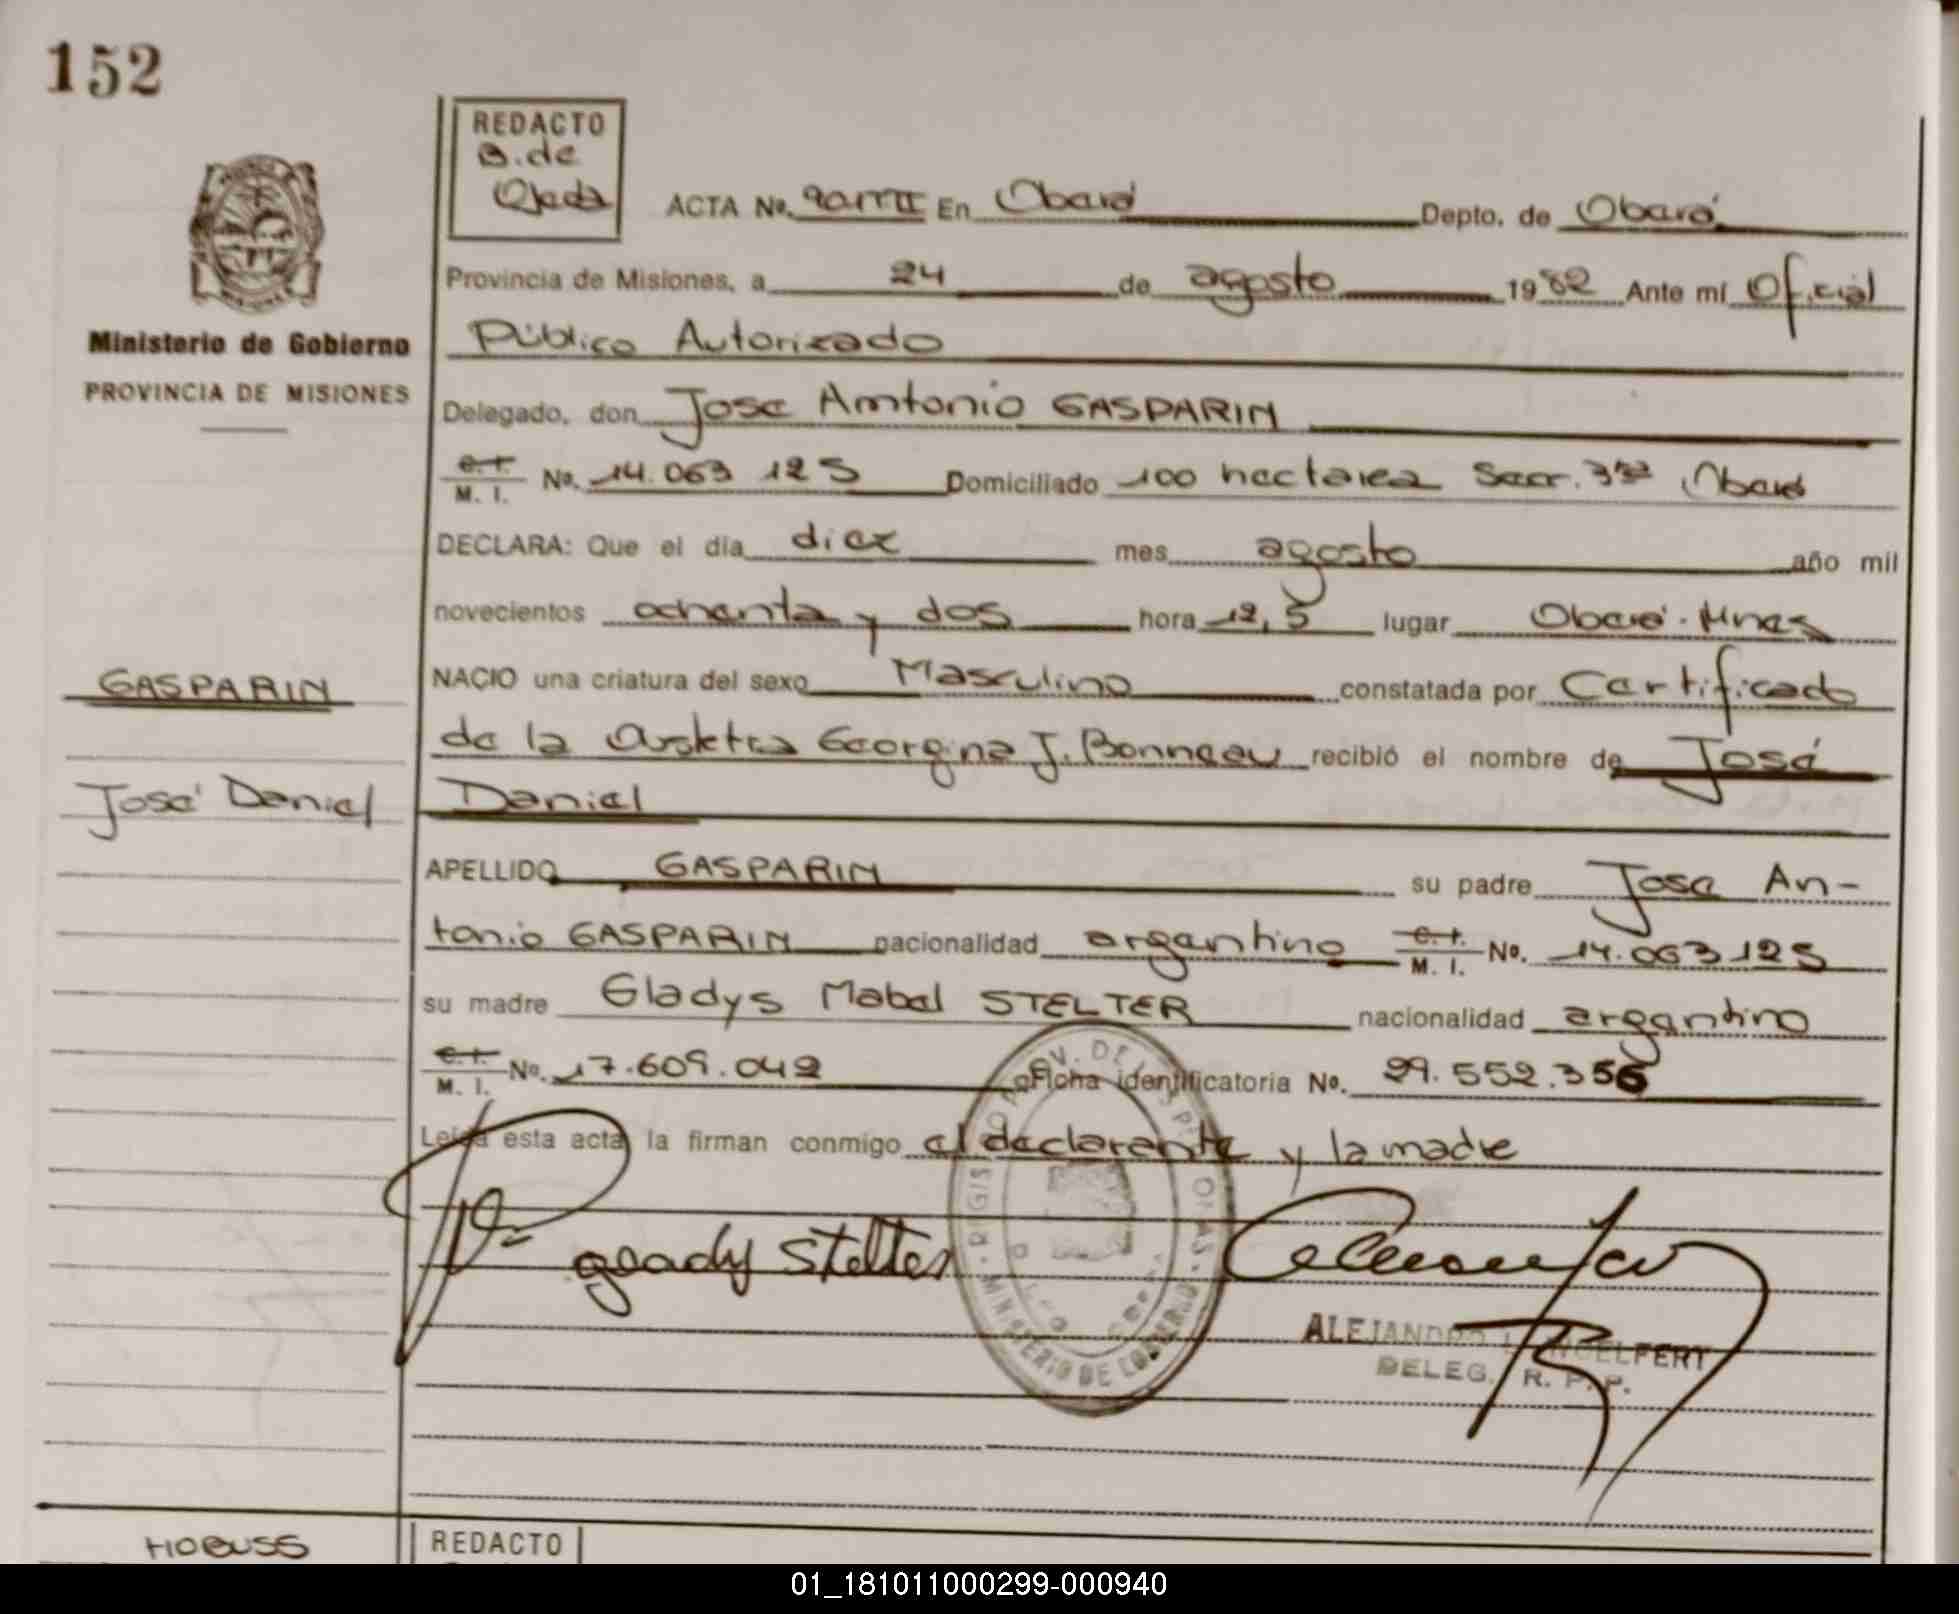 152
REDACTO
B. de
Ojeda
ACTA No. 90 TII En Oberá Depto. de Oberá
Provincia de Misiones, a 24 de agosto 1982 Ante mí Oficial
Ministerio de Gobierno
PROVINCIA DE MISIONES
Público Autorizado
Delegado, don Jose Antonio GASPARIN
C. I. M. I. No. 14.063 125 Domiciliado 100 hectarea Secc. 3ra Oberá
DECLARA: Que el día diez mes agosto año mil
novecientos ochenta y dos hora 12,5 lugar Oberá - Mnes
GASPARIN
NACIO una criatura del sexo Masculino constatada por Certificado
de la Georgina J. Bonneau recibió el nombre de José
José Daniel
Daniel
APELLIDO GASPARIN su padre Jose An-
tonio GASPARIN nacionalidad argentino C. I. M. I. No. 14.063125
su madre Gladys Mabel STELTER nacionalidad argentino
C. I. M. I. No. 17.609.042 Ficha identificatoria No. 29.552.356
Leída esta acta, la firman conmigo el declarante y la madre
gladys Stelter
REGISTRO PROV. DE LAS PERSONAS
MINISTERIO DE GOBIERNO
ALEJANDRO
DELEG. R. P. P.
HOBUSS
REDACTO
01_181011000299-000940